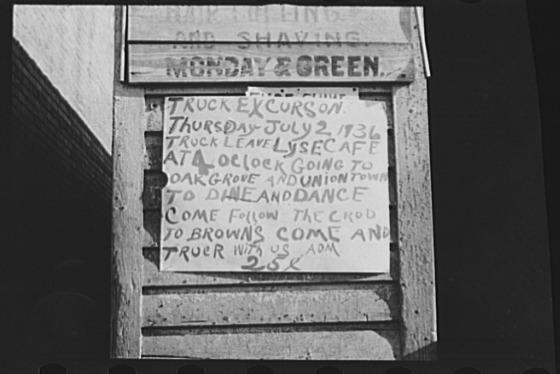 HAIR CUTTING
AND SHAVING.
MONDAY & GREEN.
TRUCK EXCURSON.
THURSDAY JULY 2 1936
TRUCK LEAVE LYSE CAFE
AT 4 OCLOCK GOING TO
OAK GROVE AND UNION TOWN
TO DINE AND DANCE
COME FOLLOW THE CROD
TO BROWNS COME AND
TRUCR WITH US ADM
25¢